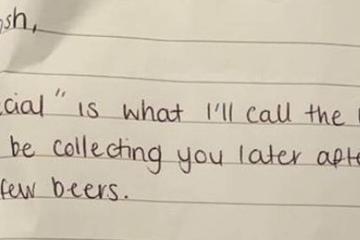 sh,
cial" is what I'll call the
be collecting you later afte
few beers.